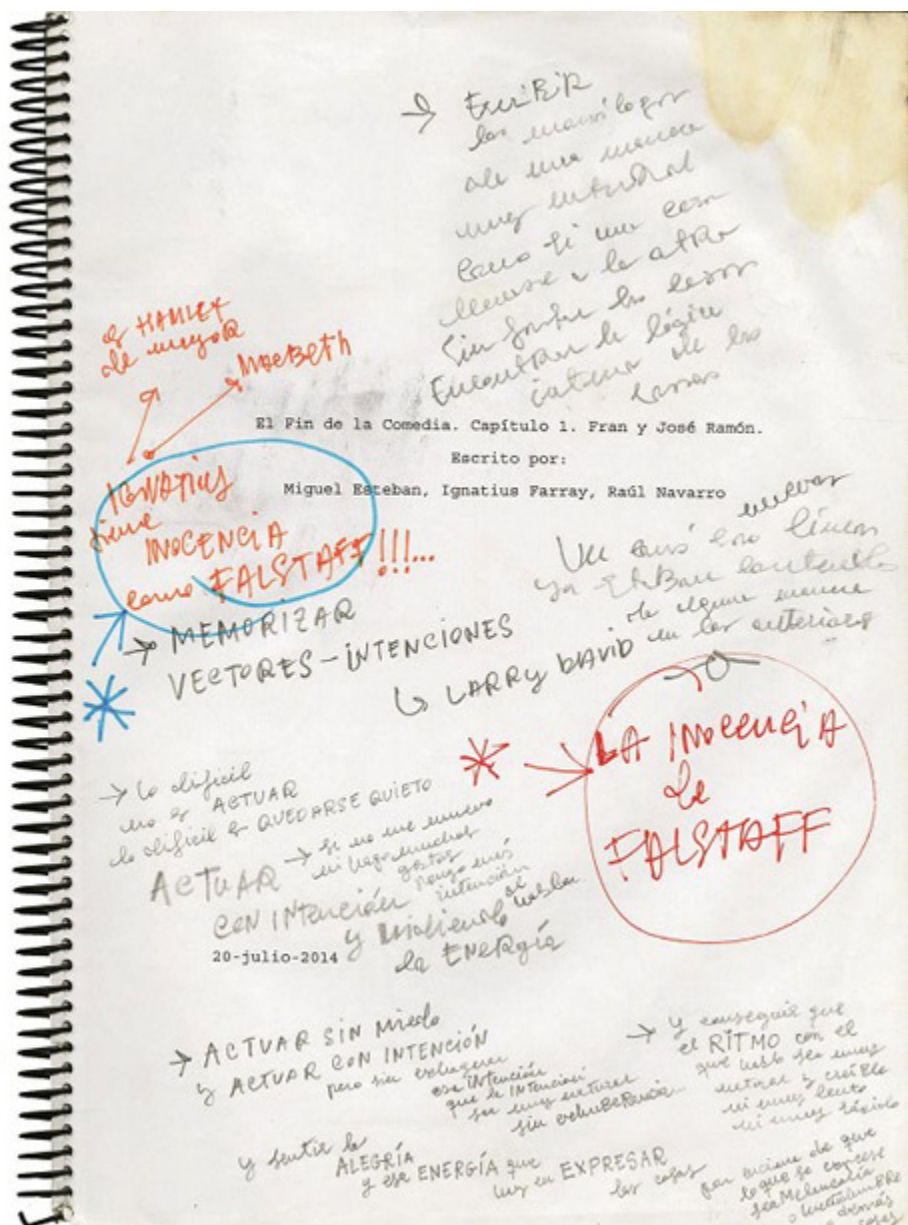 → EscRiBiR
los monólogos
de una manera
muy natural
como si una cosa
llevase a la otRa
Sin forzar las cosas
EncontRar la lógica
interna de las
cosas
es HAMLET
de mayoR
MacBeth
El Fin de la Comedia. Capítulo 1. Fran y José Ramón.
Escrito por:
Miguel Esteban, Ignatius Farray, Raúl Navarro
IGNATIUS
tiene
INOCENCIA
como FALSTAFF!!!...
nuevas
líneas
ya estaban contenidas
de alguna manera
en las anteriores
→ MEMORIZAR
VECTORES-INTENCIONES
LARRY DAVID
LA INOCENCIA
de
FALSTAFF
→ Lo difícil
no es ACTUAR
lo difícil es QUEDARSE QUIETO
ACTUAR → si no me muevo
ni hago muchos
gestos
pongo más
intención
CON INTENCIÓN al hablar
y midiendo
la ENERGÍA
20-julio-2014
→ ACTUAR SIN Miedo
y ACTUAR CON INTENCIÓN
pero sin exagerar
esa intención
que la intención
sea muy natural
sin exuberancia
→ y conseguir que
el RITMO con el
que hablo sea muy
natural y creíble
ni muy lento
ni muy rápido
y sentir la
ALEGRÍA
y esa ENERGÍA que
hay en EXPRESAR
las cosas
por encima de que
lo que se exprese
sea Melancolía
demás
cosas